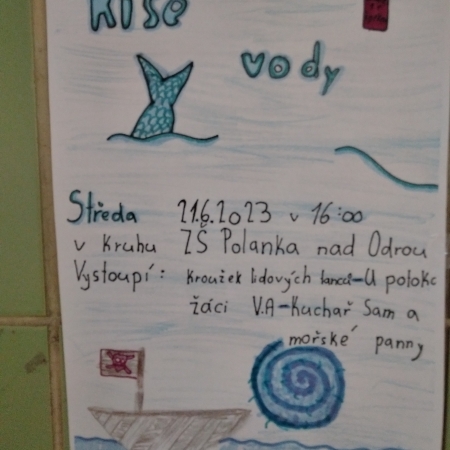 Říše
vody
Středa 21.6.2023 v 16:00
v Kruhu ZŠ Polanka nad Odrou
Vystoupí: Kroužek lidových tanců-U poloko
žáci V.A-Kuchař Sam a
mořské panny